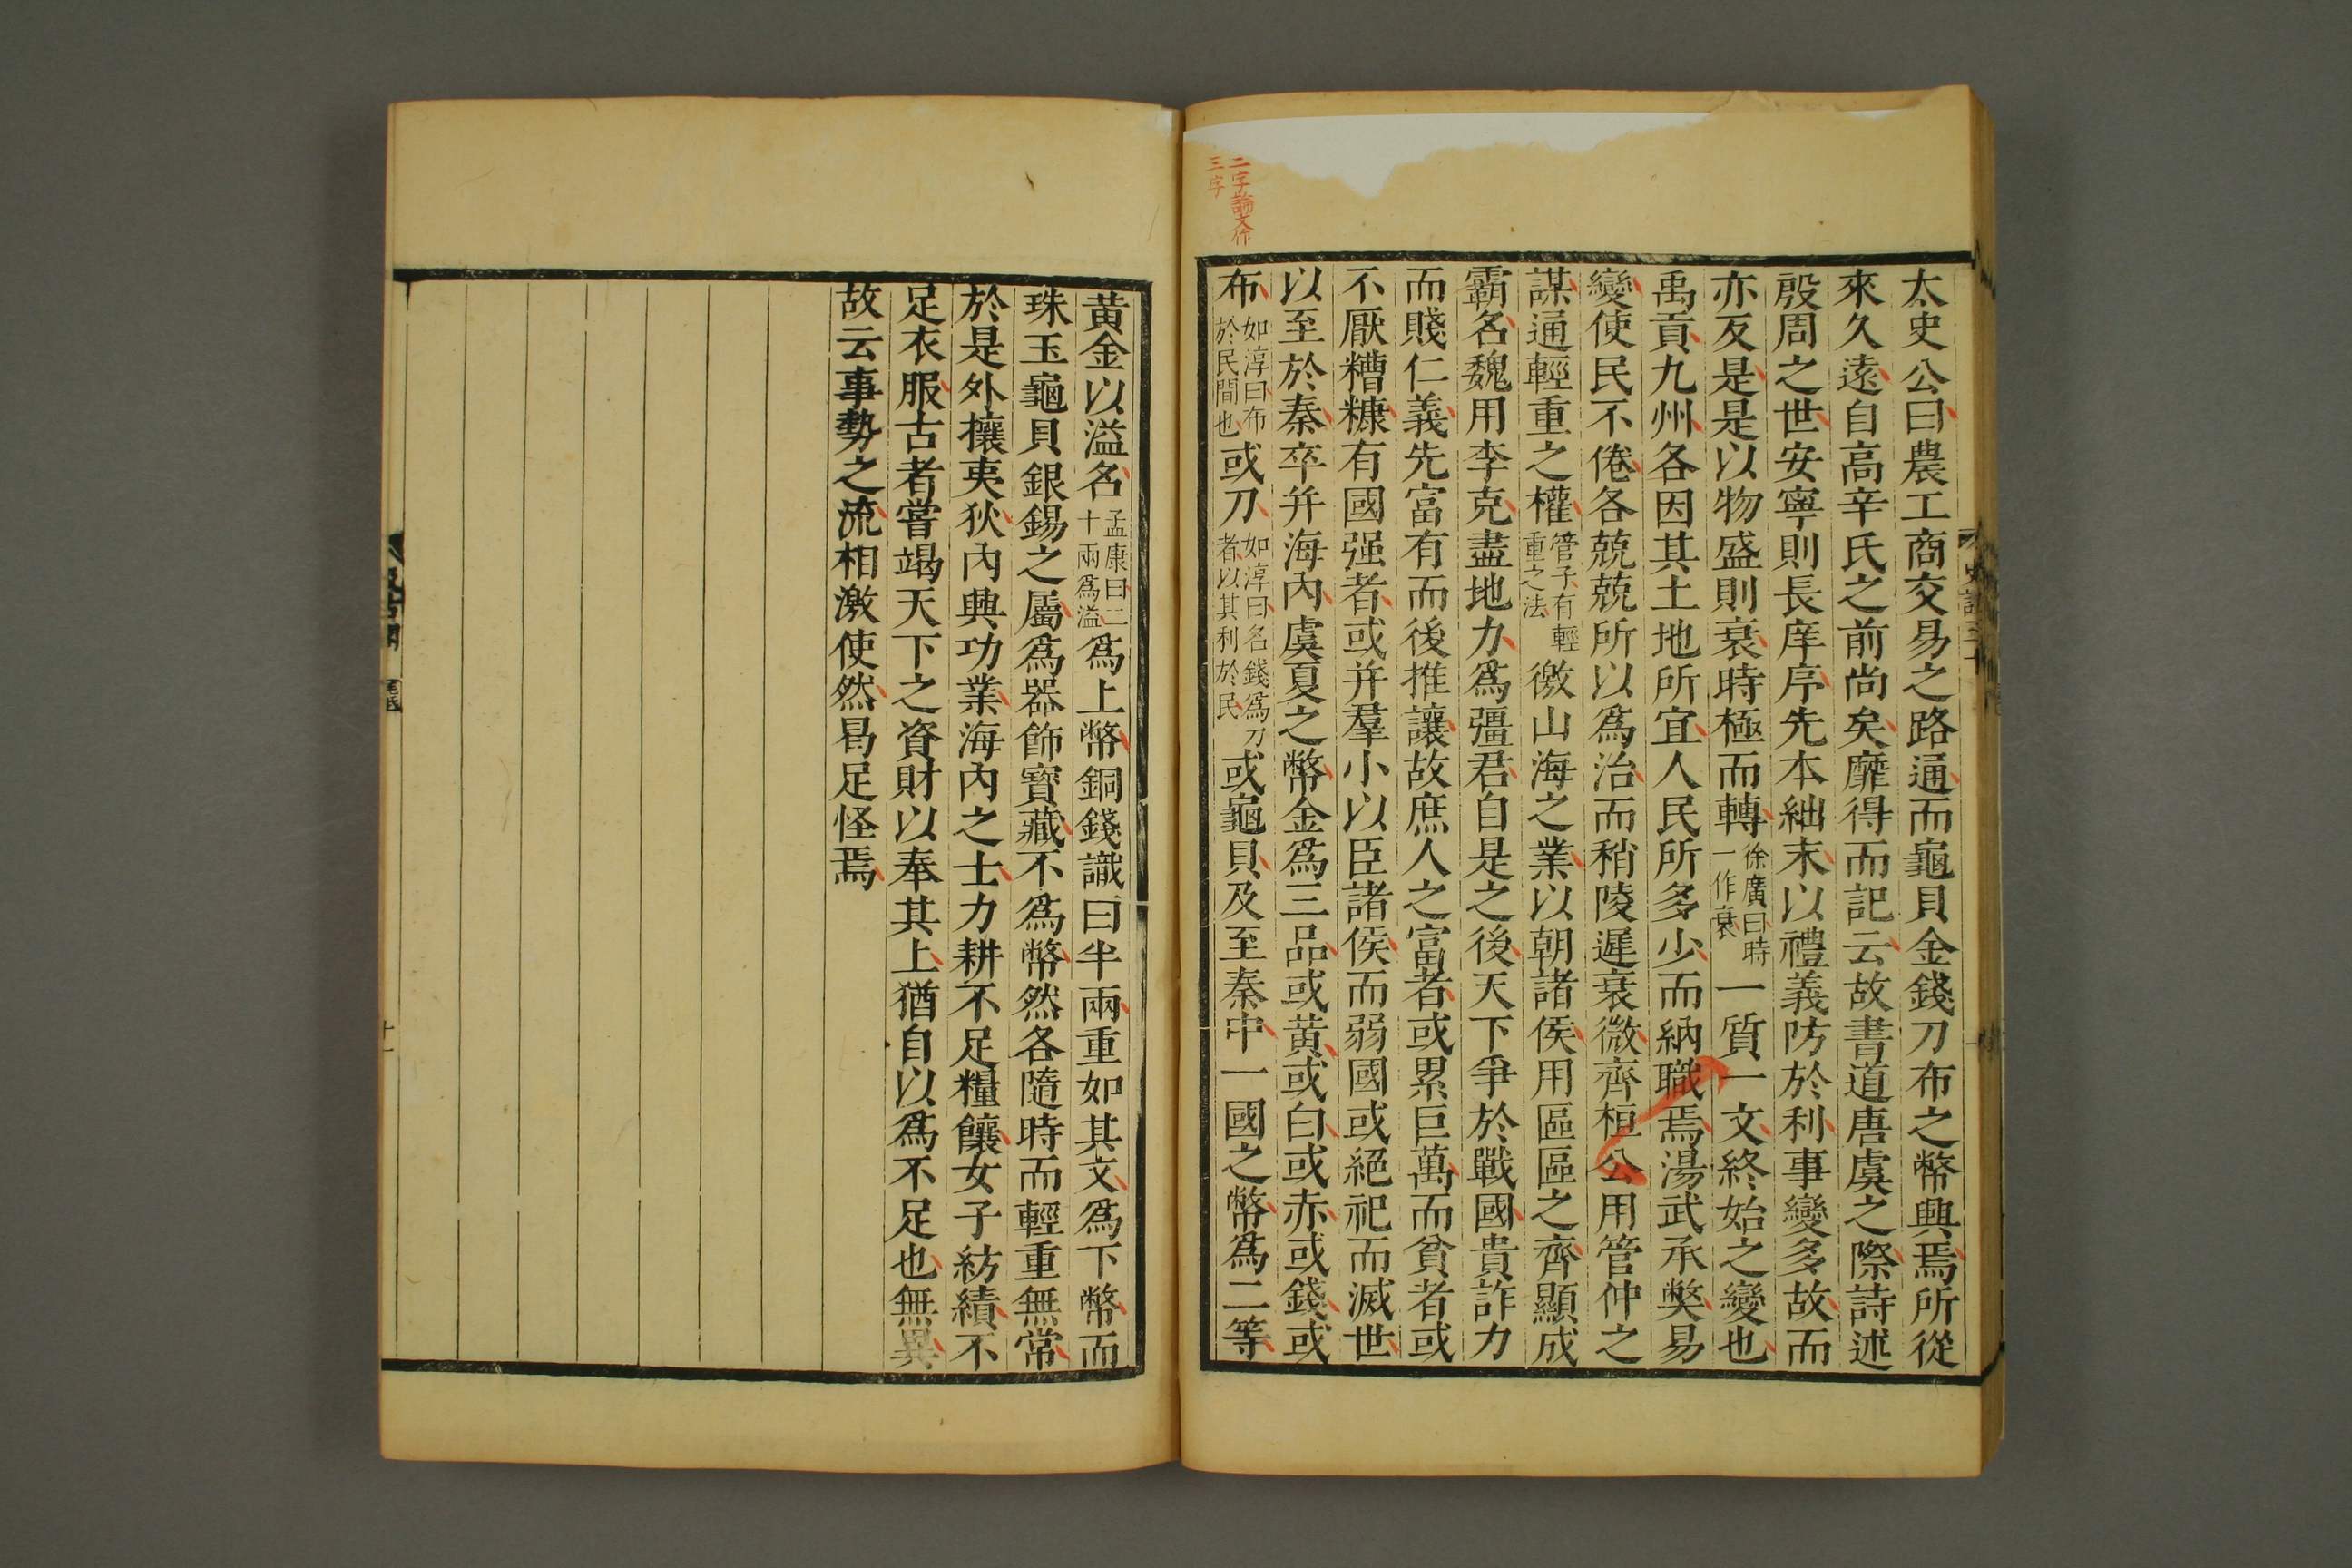 二字論文作
三字
太史公曰農工商交易之路通而龜貝金錢刀布之幣興焉所從
來久遠自高辛氏之前尚矣靡得而記云故書道唐虞之際詩述
殷周之世安寧則長庠序先本絀末以禮義防於利事變多故而
亦反是是以物盛則衰時極而轉徐廣曰時一作衰一質一文終始之變也
禹貢九州各因其土地所宜人民所多少而納職焉湯武承獘易
變使民不倦各兢兢所以爲治而稍陵遲衰微齊桓公用管仲之
謀通輕重之權管子有輕重之法徼山海之業以朝諸侯用區區之齊顯成
霸名魏用李克盡地力爲彊君自是之後天下爭於戰國貴詐力
而賤仁義先富有而後推讓故庶人之富者或累巨萬而貧者或
不厭糟糠有國强者或并羣小以臣諸侯而弱國或絕祀而滅世
以至於秦卒并海內虞夏之幣金爲三品或黃或白或赤或錢或
布如淳曰布於民間也或刀如淳曰名錢爲刀者以其利於民或龜貝及至秦中一國之幣爲二等
黃金以溢名孟康曰二十兩爲溢爲上幣銅錢識曰半兩重如其文爲下幣而
珠玉龜貝銀錫之屬爲器飾寶藏不爲幣然各隨時而輕重無常
於是外攘夷狄內興功業海內之士力耕不足糧饟女子紡績不
足衣服古者嘗竭天下之資財以奉其上猶自以爲不足也無異
故云事勢之流相激使然曷足怪焉
史記三十
十一